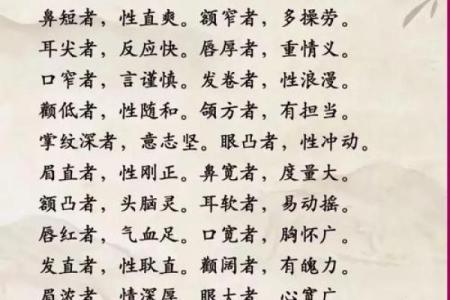 鼻短者，性直爽。额窄者，多操劳。
耳尖者，反应快。唇厚者，重情义。
口窄者，言谨慎。发卷者，性浪漫。
颧低者，性随和。颌方者，有担当。
掌纹深者，意志坚。眼凸者，性冲动。
眉直者，性刚正。鼻宽者，度量大。
额凸者，头脑灵。耳软者，易动摇。
唇红者，气血足。口宽者，胸怀广。
发直者，性耿直。颧阔者，有魄力。
眉浓者，情深厚。眼大者，心宽广。